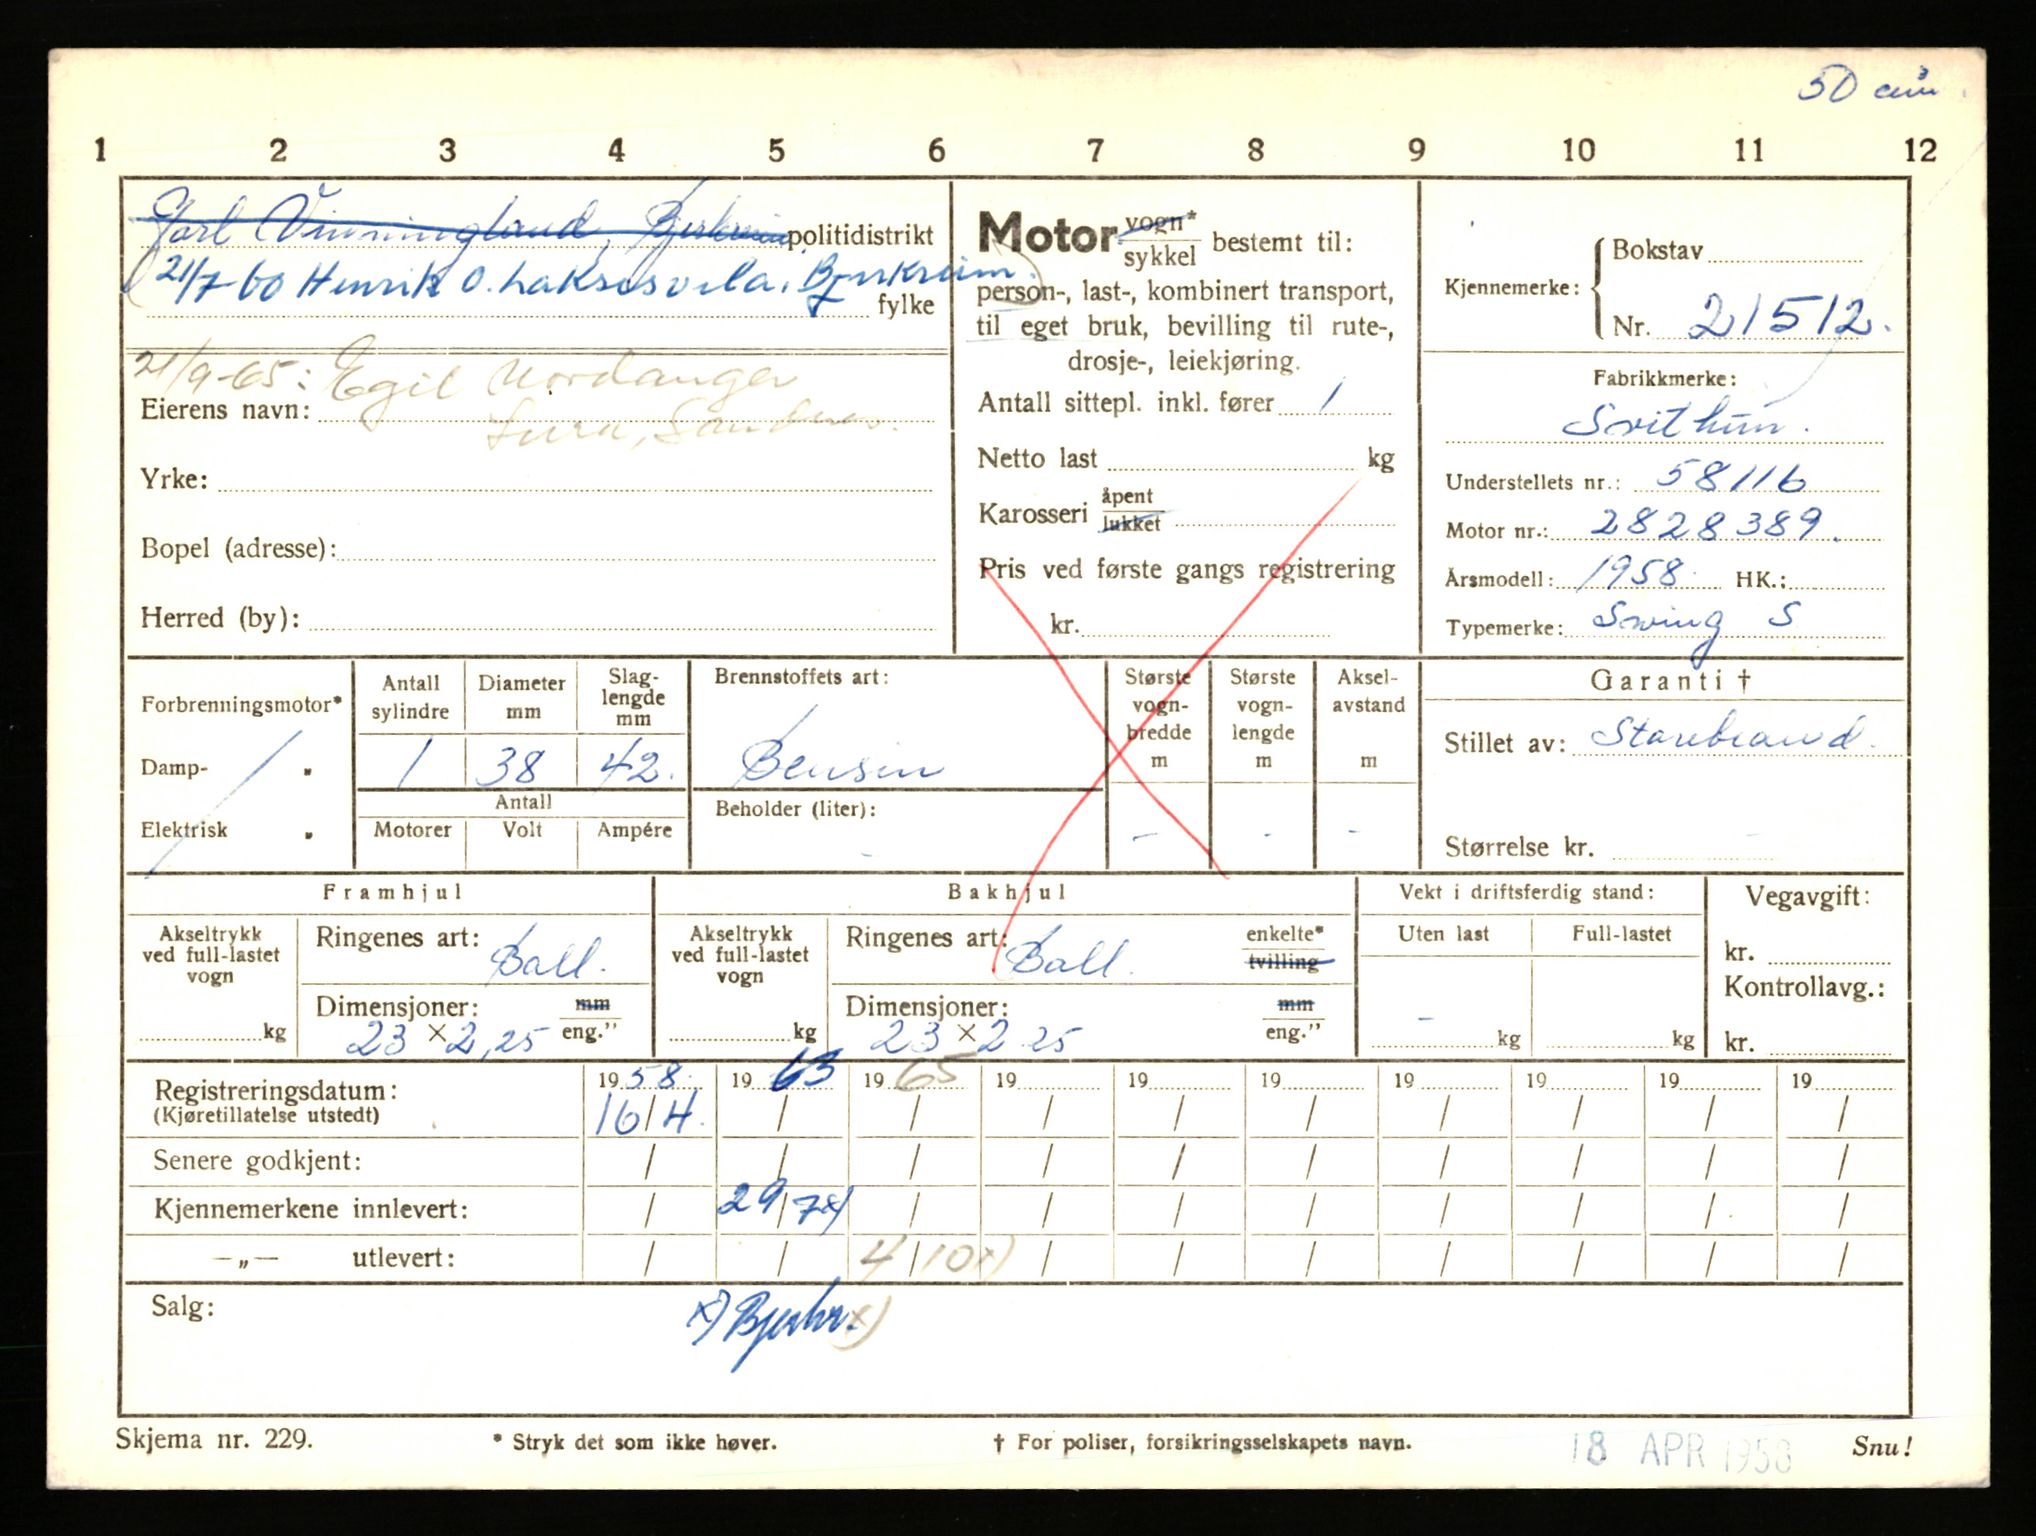 50 cm³
1 2 3 4 5 6 7 8 9 10 11 12
Jarl Vinningland, Bjerkreim politidistrikt
21/7-60 Henrik O. Laksesvela, Bjerkreim.
fylke
21/9-65: Egil Nordanger
Eierens navn: Lura, Sandnes.
Yrke:
Bopel (adresse):
Herred (by):
Motor vogn* sykkel bestemt til:
person-, last-, kombinert transport,
til eget bruk, bevilling til rute-,
drosje-, leiekjøring.
Antall sittepl. inkl. fører 1
Netto last kg
Karosseri åpent lukket
Pris ved første gangs registrering
kr.
Kjennemerke: Bokstav
Nr. 21512.
Fabrikkmerke:
Svithun.
Understellets nr.: 58116
Motor nr.: 2828389.
Årsmodell: 1958. HK.:
Typemerke: Swing S
Forbrenningsmotor*
Damp- „
Elektrisk „
Antall sylindre Diameter mm Slag-lengde mm
1 38 42.
Antall
Motorer Volt Ampére
Brennstoffets art:
Bensin
Beholder (liter): -
Største vogn-bredde m Største vogn-lengde m Aksel-avstand m
- - -
Garanti †
Stillet av: Storebrand.
Størrelse kr.
Framhjul
Akseltrykk ved full-lastet vogn
kg
Ringenes art: Ball.
Dimensjoner: mm
23 x 2,25 eng.”
Bakhjul
Akseltrykk ved full-lastet vogn
kg
Ringenes art: Ball. enkelte* tvilling
Dimensjoner: mm
23 x 2 25 eng.”
Vekt i driftsferdig stand:
Uten last Full-lastet
- kg kg
Vegavgift:
kr.
Kontrollavg.:
kr.
Registreringsdatum: 1958. 1963 1965 19 19 19 19 19 19 19
(Kjøretillatelse utstedt) 16/4. / / / / / / / / /
Senere godkjent: / / / / / / / / / /
Kjennemerkene innlevert: / 29/7x) / / / / / / / /
—„— utlevert: / / 4/10x) / / / / / / /
Salg: x) Bjerkr. x)
Skjema nr. 229. * Stryk det som ikke høver. † For poliser, forsikringsselskapets navn. 18 APR 1958 Snu!